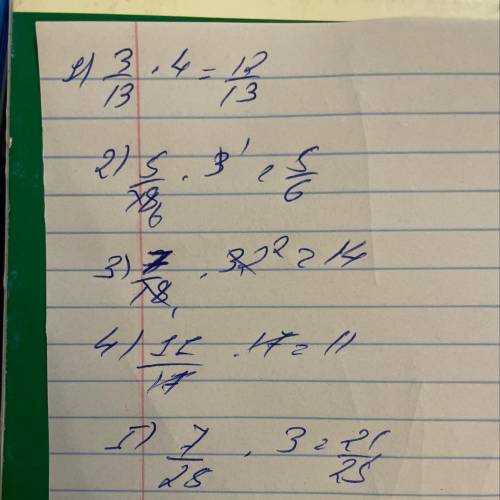 1) 3/13 · 4 = 12/13
2) 5/18 6 · 3 1 = 5/6
3) 7/18 1 · 2 = 14
4) 11/17 · 17 = 11
5) 7/25 · 3 = 21/25